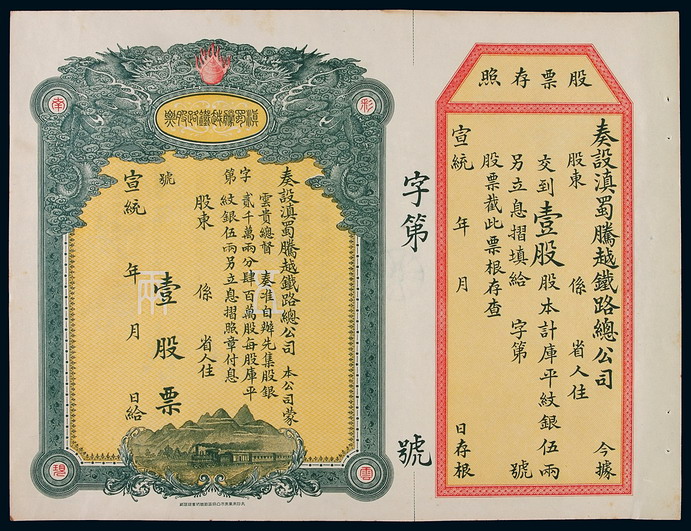 股票存照
奏設滇蜀騰越鐵路總公司 今據
股東 係 省人住
交到壹股股本計庫平紋銀伍兩
另立息摺填給 字第 號
股票截此票根存查
宣統 年 月 日存根
字第 號
滇蜀騰越鐵路股票
彩
南
雲
奏設滇蜀騰越鐵路總公司 本公司蒙
雲貴總督 奏准自辦先集股銀
貳千萬兩分肆百萬股每股庫平
紋銀伍兩另立息摺照章付息
字第 號
股東 係 省人住
壹股票
宣統 年 月 日給
伍兩